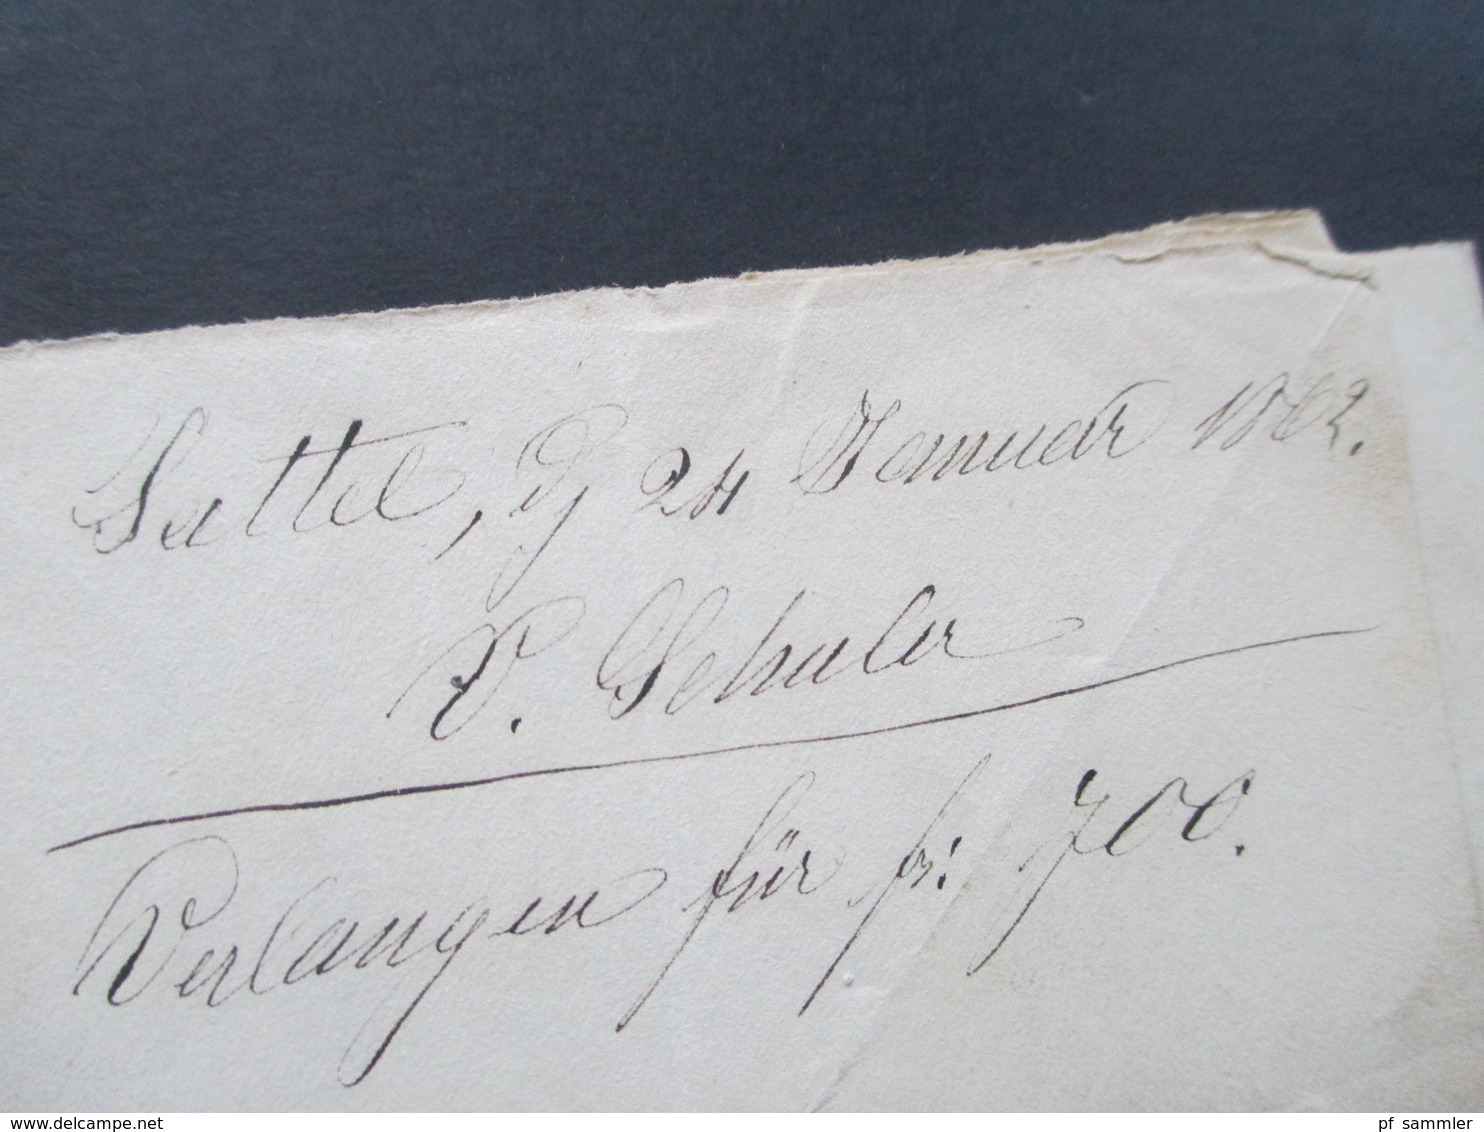 Sattel, d 24 Januar 1862.
V. Schuler
Verlangen für fr: 700.
© www.delcampe.net
pf_sammler